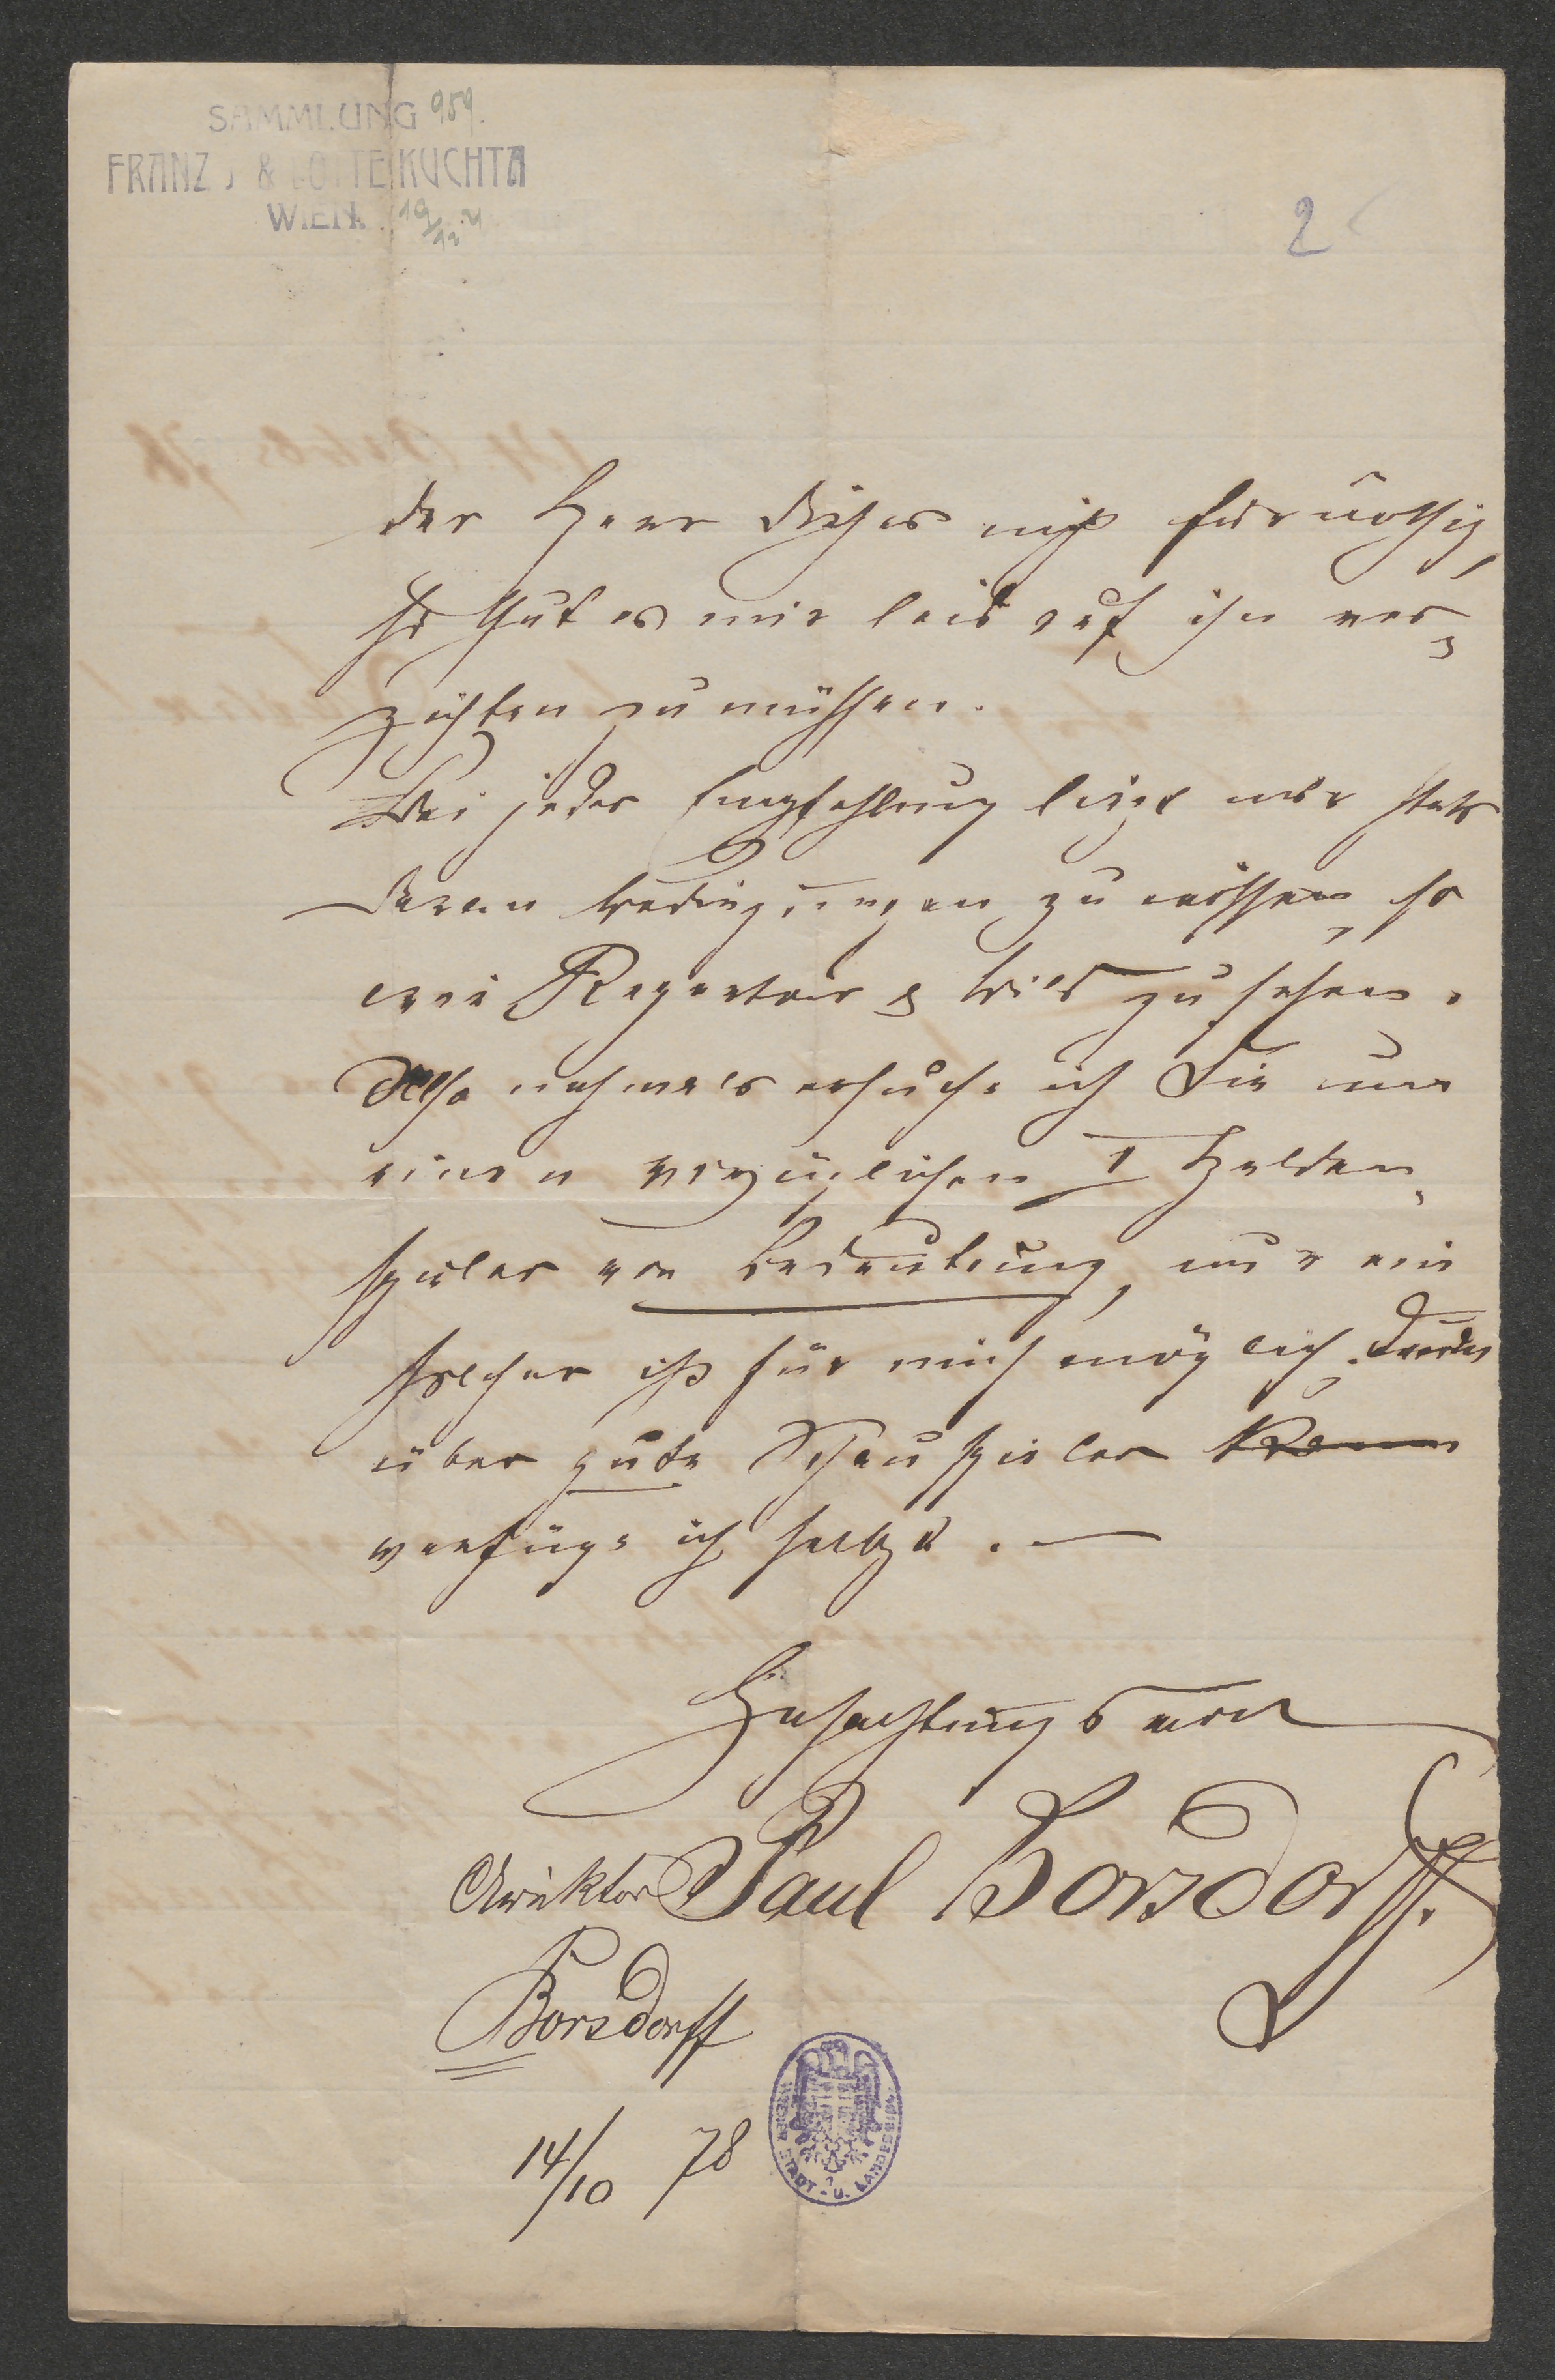 SAMMLUNG 959.
FRANZ J & LOTTE KUCHTA
WIEN
2
der Herr dieses nicht für nöthig,
so thut es mir leid auf ihn ver-
zichten zu müssen.
Bei jeder Empfehlung liegt mir stets
daran Bedingungen zu wissen, so
wie Repertoir & Bild zu sehen.
Also nochmals ersuche ich Sie um
einen vorzüglichen I Helden-
spieler von Bedeutung, nur ein
solcher ist für mich möglich.
über gute Schauspieler
verfüge ich selbst. —
Hochachtungsvoll
Direktor Paul Borsdorff.
Borsdorff
14/10 78
WIENER STADT- U. LANDESBIBL.